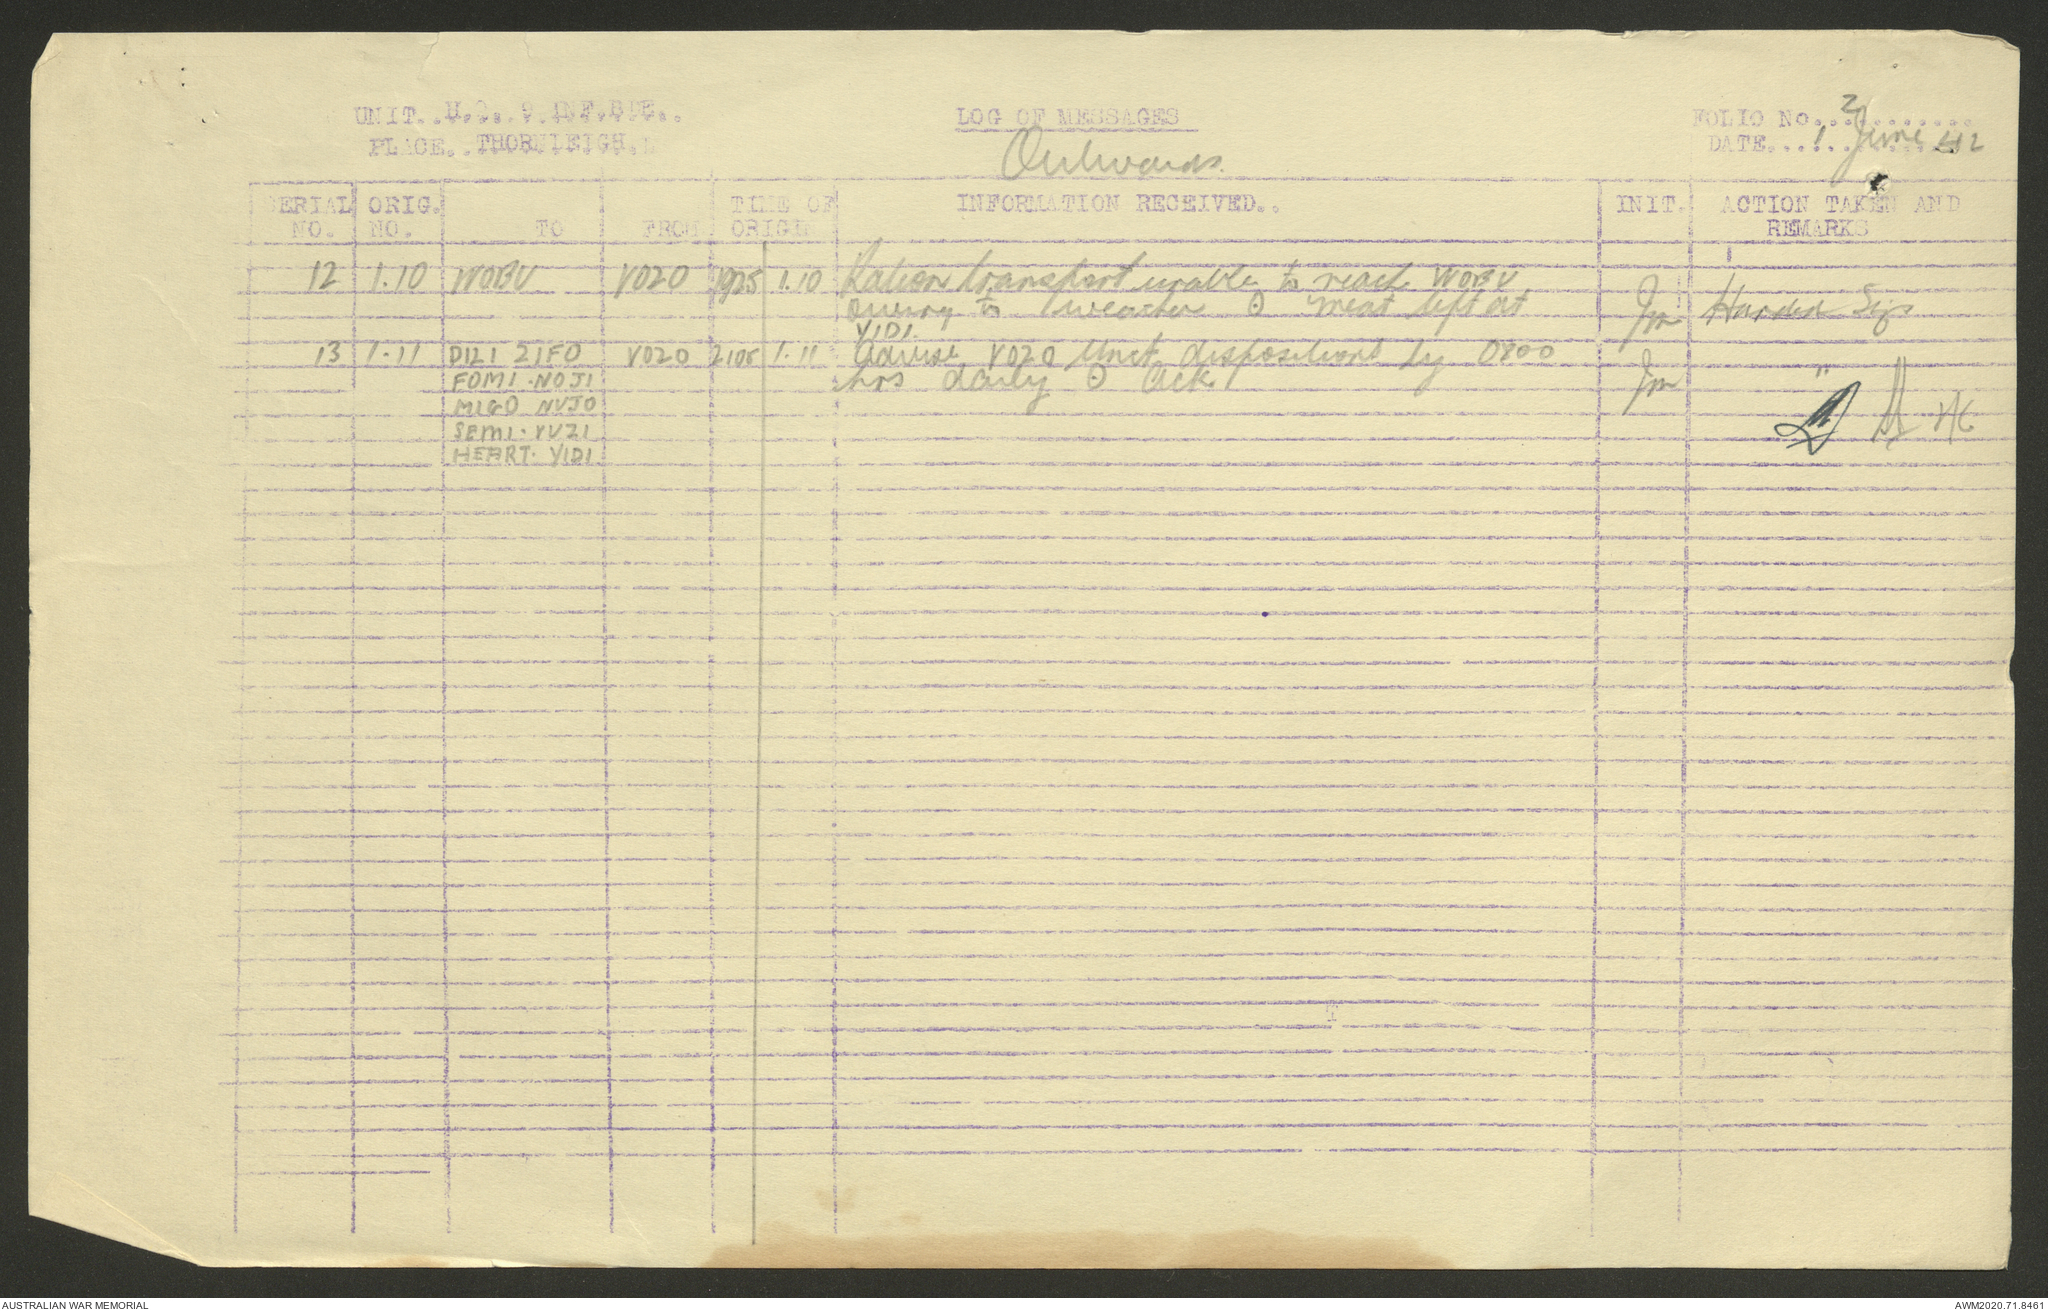 UNIT. H.Q. 9 INF. BDE.
LOG OF MESSAGES
FOLIO NO. 2
PLACE. THORNLEIGH.
Outwards.
DATE. 1 June 42
SERIAL NO. ORIG. NO. TO FROM TIME OF ORIGIN INFORMATION RECEIVED.. INIT. ACTION TAKEN AND REMARKS
12 1.10 WOBU VO20 1925 1.10 Ration transport unable to reach WOBU
owing to weather ⊙ meat left at Jm Handed Sigs
YIDI.
13 1.11 DILI ZIFO VO20 2105 1.11 Advise VO20 Unit dispositions by 0900
FOMI. NOJI hrs daily ⊙ Ack. Jm "
MIGO NUJO
SEMI. VUZI
HEART. YIDI
AUSTRALIAN WAR MEMORIAL
AWM2020.71.8461